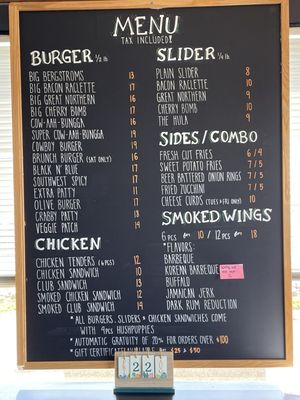 MENU
TAX INCLUDED!
BURGER 1/2 lb
BIG BERGSTROMS 13
BIG BACON RACLETTE 17
BIG GREAT NORTHERN 16
BIG CHERRY BOMB 17
COW-AAH-BUNGGA 16
SUPER COW-AAH-BUNGGA 19
COWBOY BURGER 19
BRUNCH BURGER (SAT ONLY) 16
BLACK N' BLUE 17
SOUTHWEST SPICY 17
EXTRA PATTY 11
OLIVE BURGER 17
CRABBY PATTY 13
VEGGIE PATCH 14
CHICKEN
CHICKEN TENDERS (4 PCS) 12
CHICKEN SANDWICH 10
CLUB SANDWICH 13
SMOKED CHICKEN SANDWICH 12
SMOKED CLUB SANDWICH 14
SLIDER 1/4 lb
PLAIN SLIDER 8
BACON RACLETTE 10
GREAT NORTHERN 9
CHERRY BOMB 10
THE HULA 9
SIDES/COMBO
FRESH CUT FRIES 6/4
SWEET POTATO FRIES 7/5
BEER BATTERED ONION RINGS 7/5
FRIED ZUCCHINI 7/5
CHEESE CURDS (TUES & FRI ONLY) 10
SMOKED WINGS
6 PCS 10 / 12 PCS 18
*FLAVORS:
BARBEQUE
KOREAN BARBEQUE
BUFFALO
JAMAICAN JERK
DARK RUM REDUCTION
* ALL BURGERS, SLIDERS & CHICKEN SANDWICHES COME
WITH 4PCS HUSHPUPPIES
* AUTOMATIC GRATUITY OF 20% FOR ORDERS OVER $100
* GIFT CERTIFICATES AVAILABLE $25 & $50
22